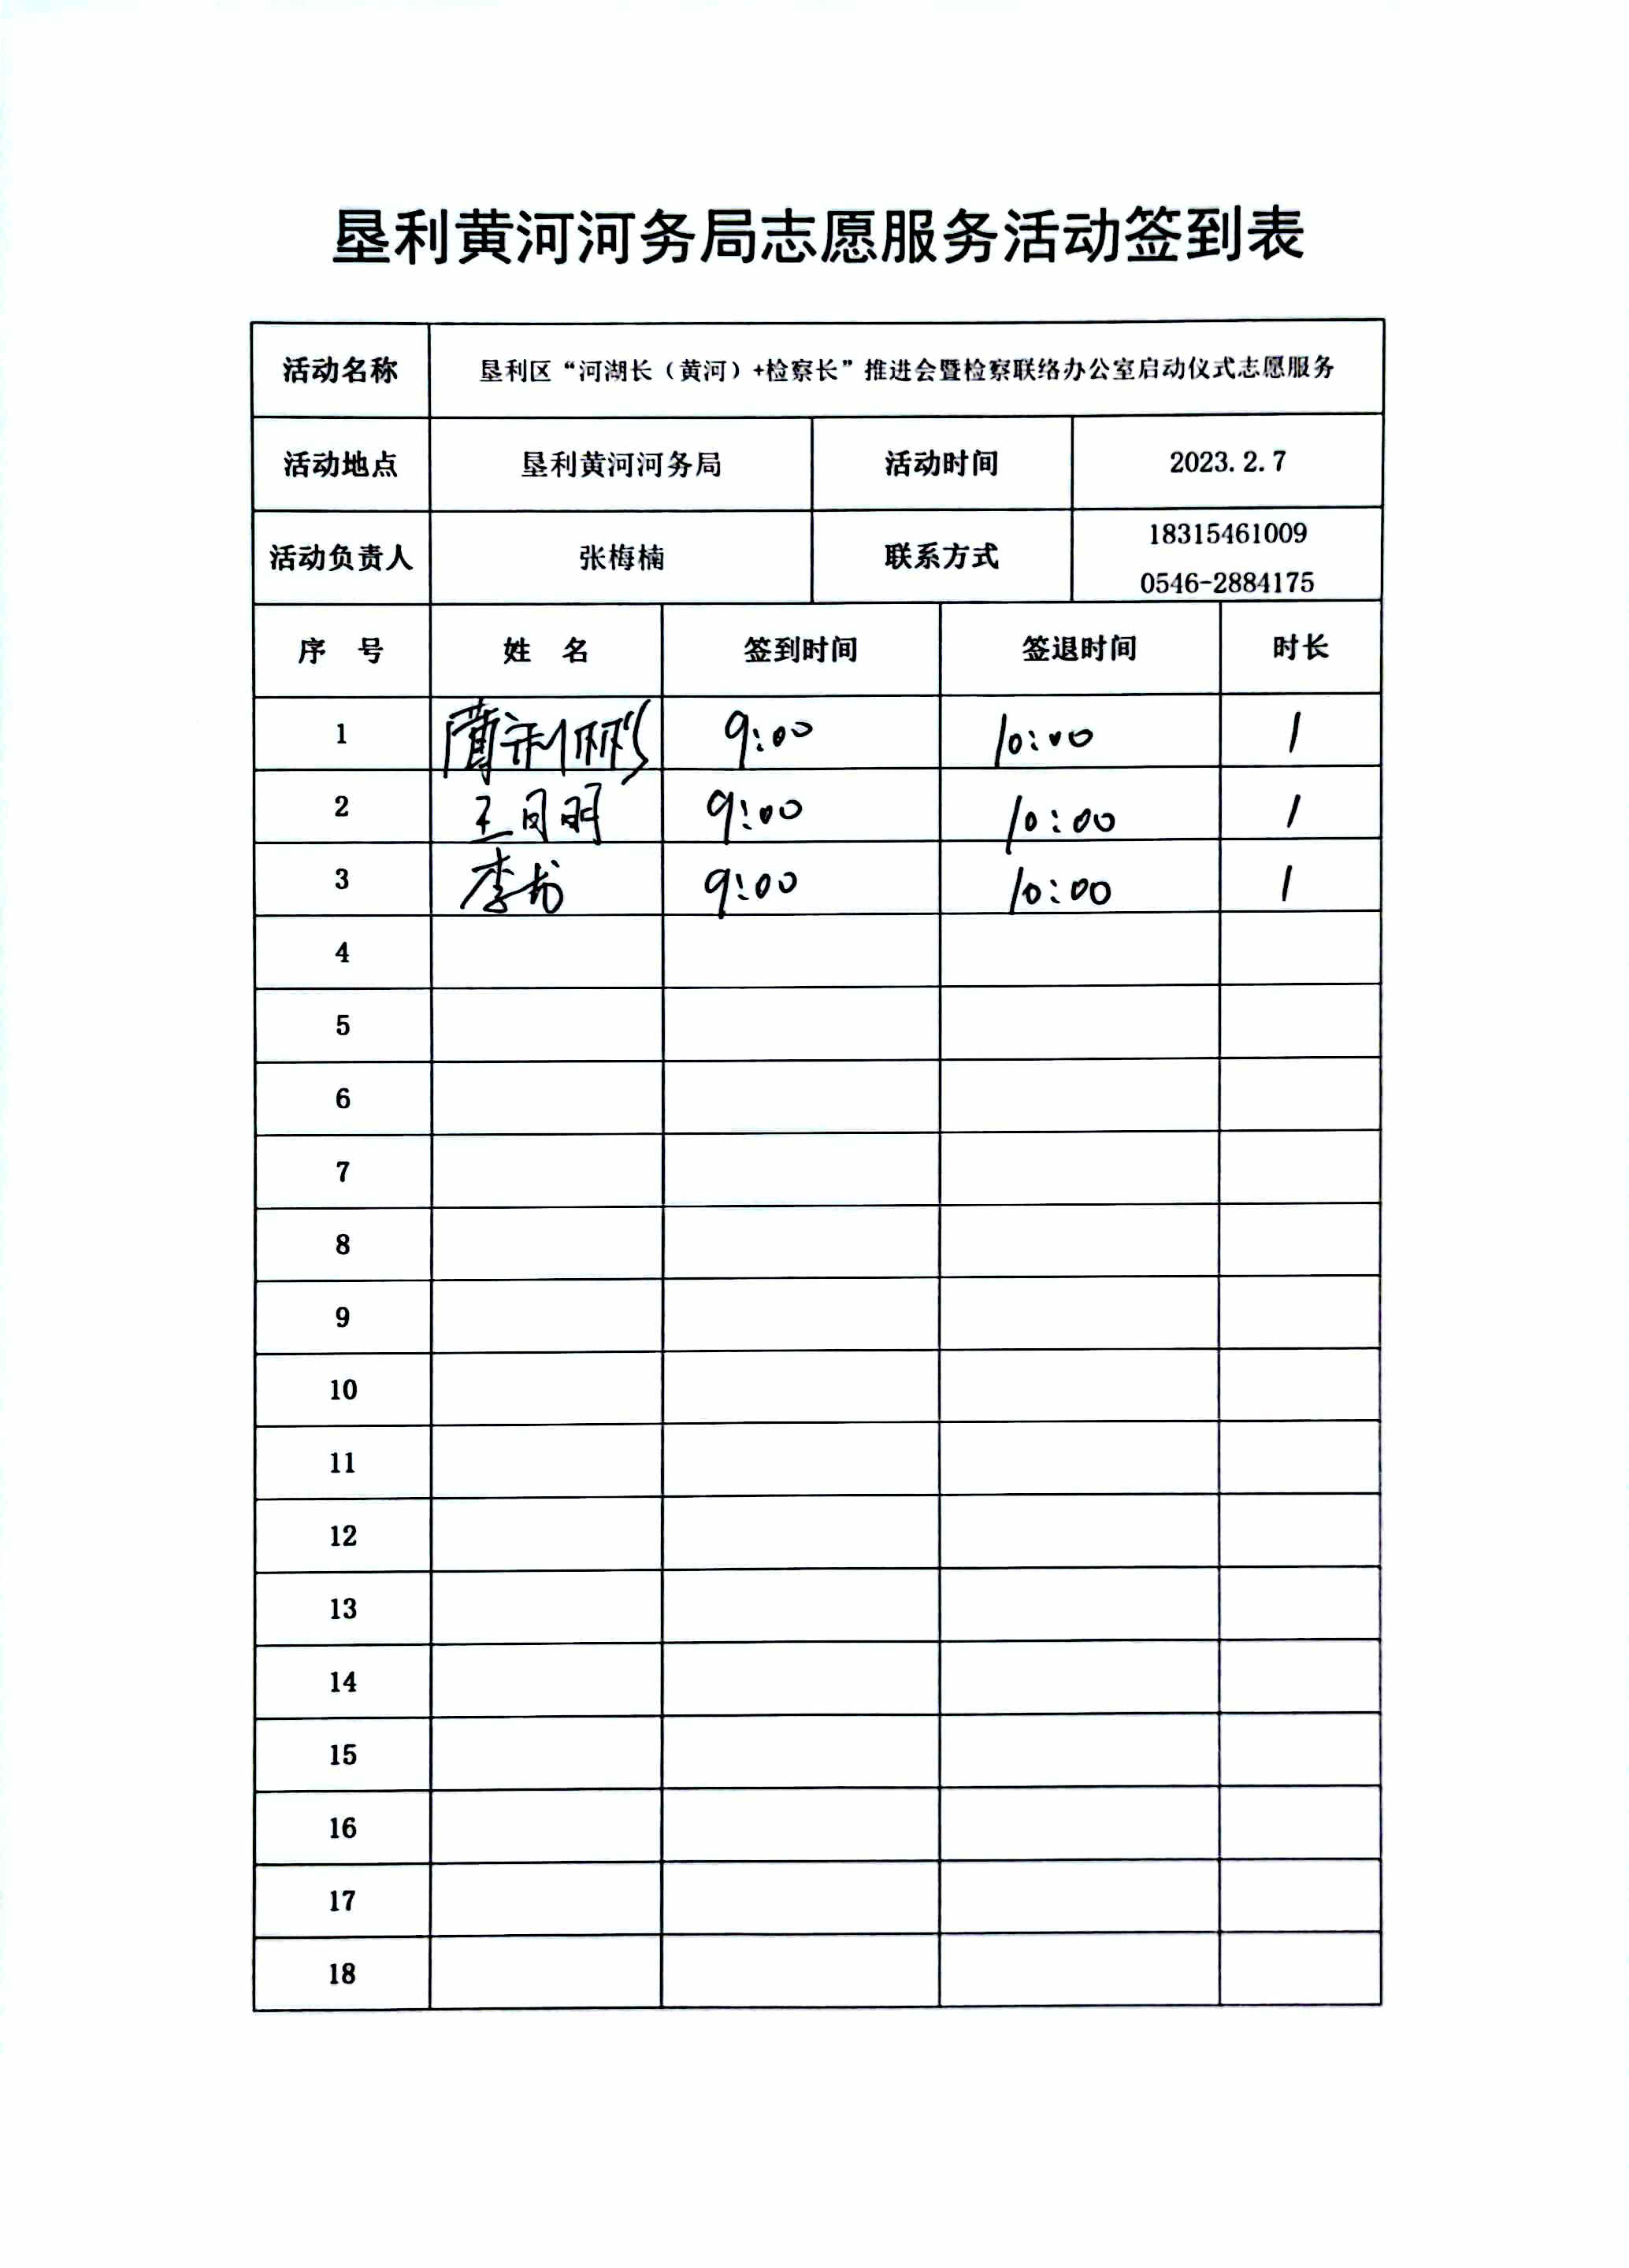 垦利黄河河务局志愿服务活动签到表
活动名称 垦利区“河湖长（黄河）+检察长”推进会暨检察联络办公室启动仪式志愿服务
活动地点 垦利黄河河务局 活动时间 2023.2.7
活动负责人 张梅楠 联系方式 18315461009
0546-2884175
序 号 姓 名 签到时间 签退时间 时长
1 9:00 10:00 1
2 王月明 9:00 10:00 1
3 李龙 9:00 10:00 1
4
5
6
7
8
9
10
11
12
13
14
15
16
17
18